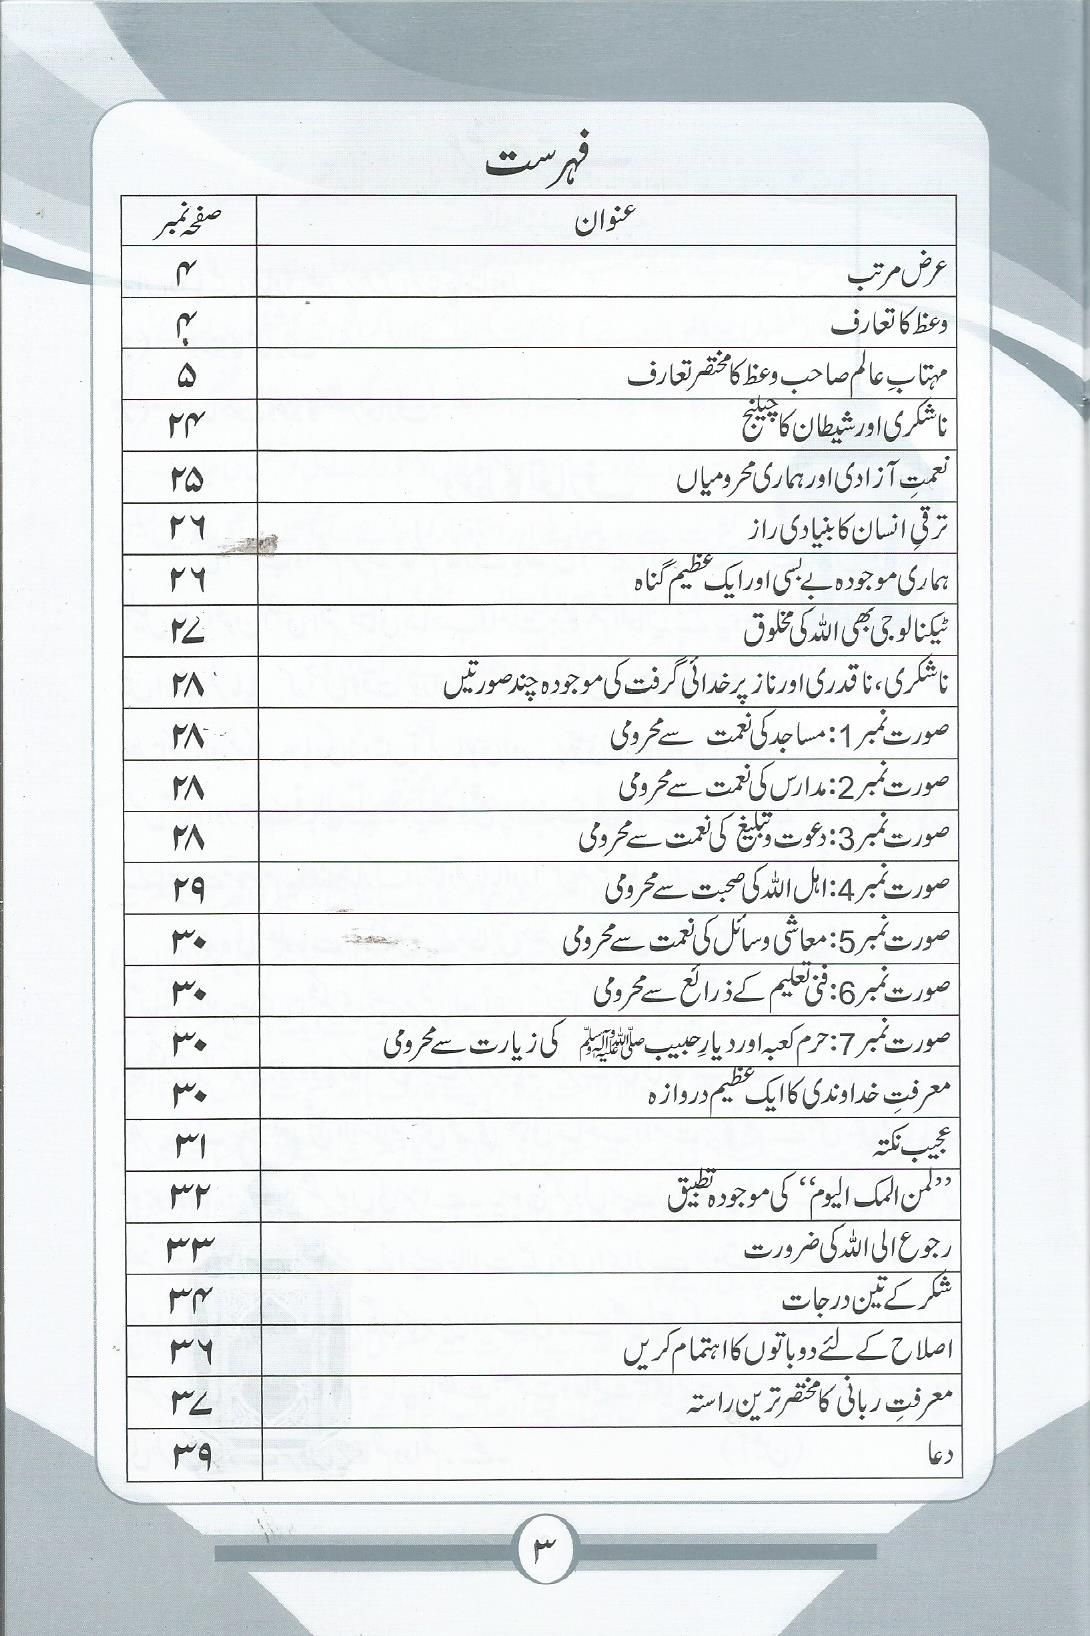 فہرست
عنوان صفحہ نمبر
عرض مرتب ۴
وعظ کا تعارف ۴
مہتابِ عالم صاحب وعظ کا مختصر تعارف ۵
ناشکری اور شیطان کا چیلنج ۲۴
نعمتِ آزادی اور ہماری محرومیاں ۲۵
ترقیِ انسان کا بنیادی راز ۲۶
ہماری موجودہ بے بسی اور ایک عظیم گناہ ۲۶
ٹیکنالوجی بھی اللہ کی مخلوق ۲۷
ناشکری، ناقدری اور ناز پر خدائی گرفت کی موجودہ چند صورتیں ۲۸
صورت نمبر 1: مساجد کی نعمت سے محرومی ۲۸
صورت نمبر 2: مدارس کی نعمت سے محرومی ۲۸
صورت نمبر 3: دعوت و تبلیغ کی نعمت سے محرومی ۲۸
صورت نمبر 4: اہل اللہ کی صحبت سے محرومی ۲۹
صورت نمبر 5: معاشی وسائل کی نعمت سے محرومی ۳۰
صورت نمبر 6: فنی تعلیم کے ذرائع سے محرومی ۳۰
صورت نمبر 7: حرم کعبہ اور دیارِ حبیب ﷺ کی زیارت سے محرومی ۳۰
معرفتِ خداوندی کا ایک عظیم دروازہ ۳۰
عجیب نکتہ ۳۱
”لمن الملک الیوم“ کی موجودہ تطبیق ۳۲
رجوع الی اللہ کی ضرورت ۳۳
شکر کے تین درجات ۳۴
اصلاح کے لئے دو باتوں کا اہتمام کریں ۳۶
معرفتِ ربانی کا مختصر ترین راستہ ۳۷
دعا ۳۹
۳